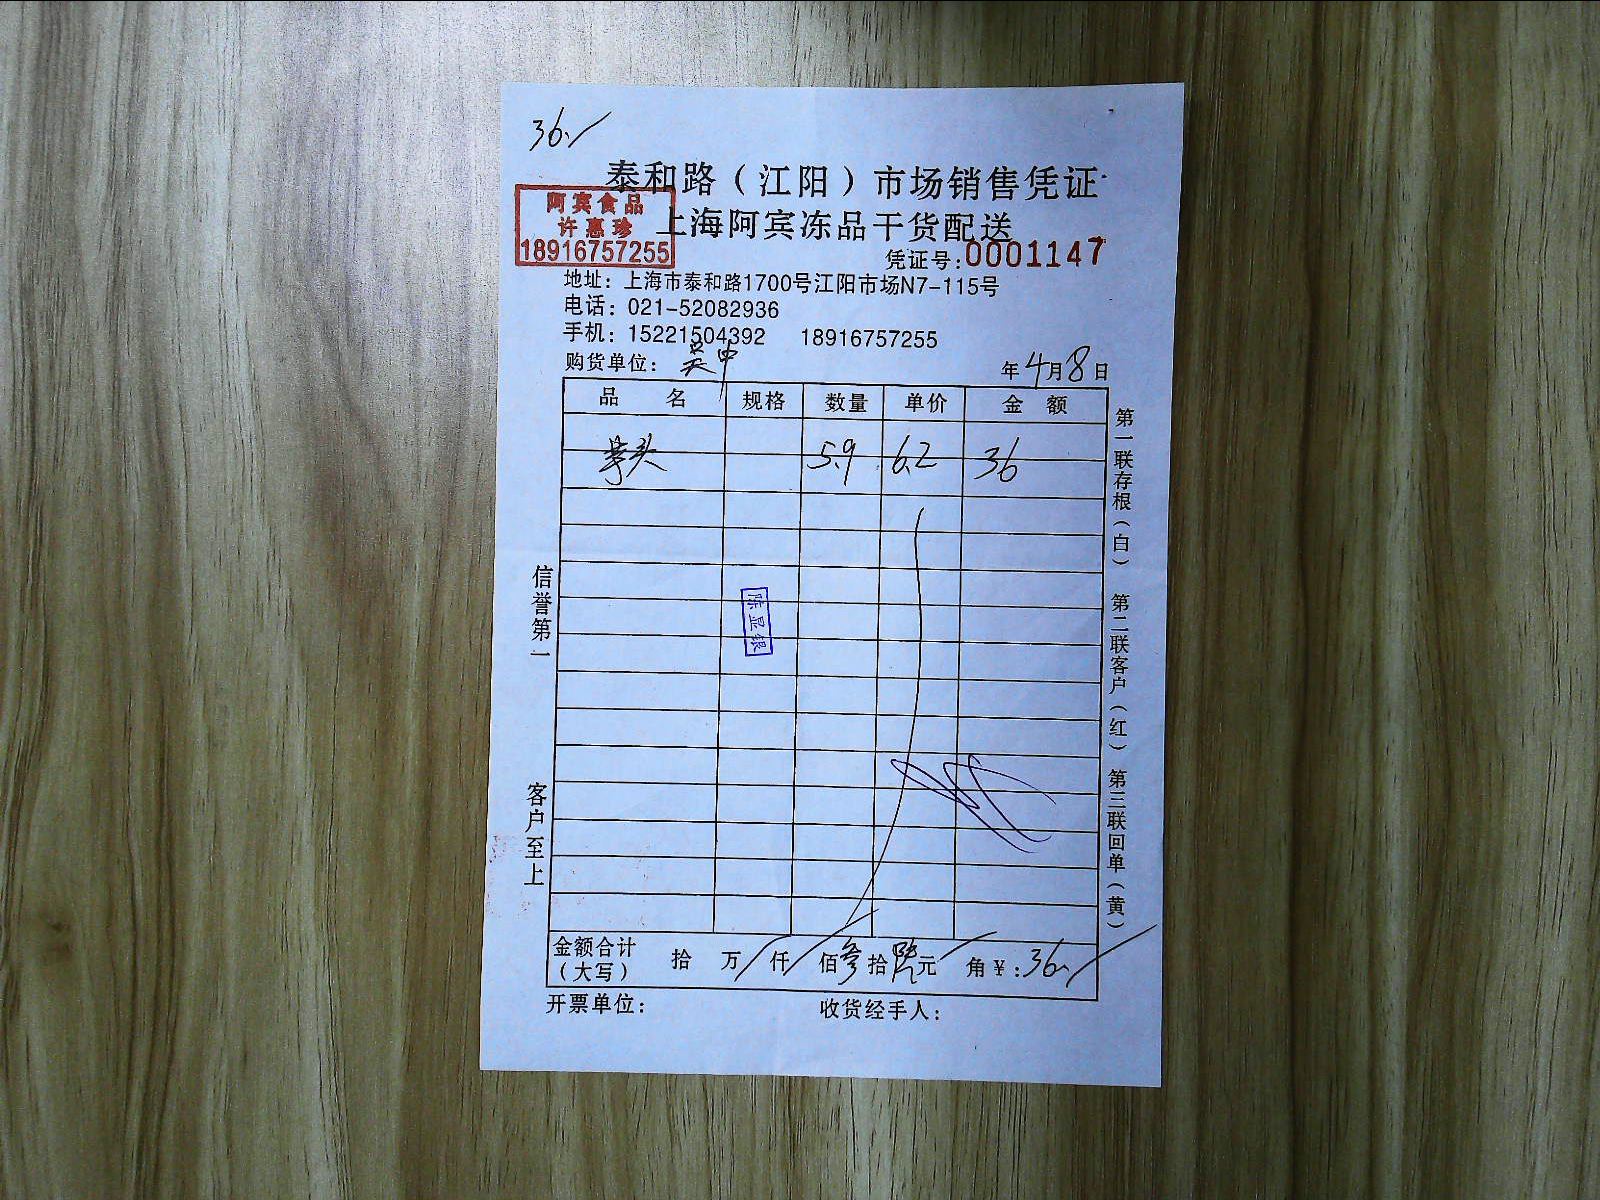 36.
泰和路（江阳）市场销售凭证
上海阿宾冻品干货配送
阿宾食品
许惠珍
18916757255
凭证号:0001147
地址：上海市泰和路1700号江阳市场N7-115号
电话：021-52082936
手机：15221504392 18916757255
购货单位：吴中 年4月8日
品名 规格 数量 单价 金额
芋头 5.9 6.2 36
陈显银
金额合计（大写） 拾 万 仟 佰叁拾陆元 角￥:36.
开票单位： 收货经手人：
信誉第一
客户至上
第一联存根（白） 第二联客户（红） 第三联回单（黄）